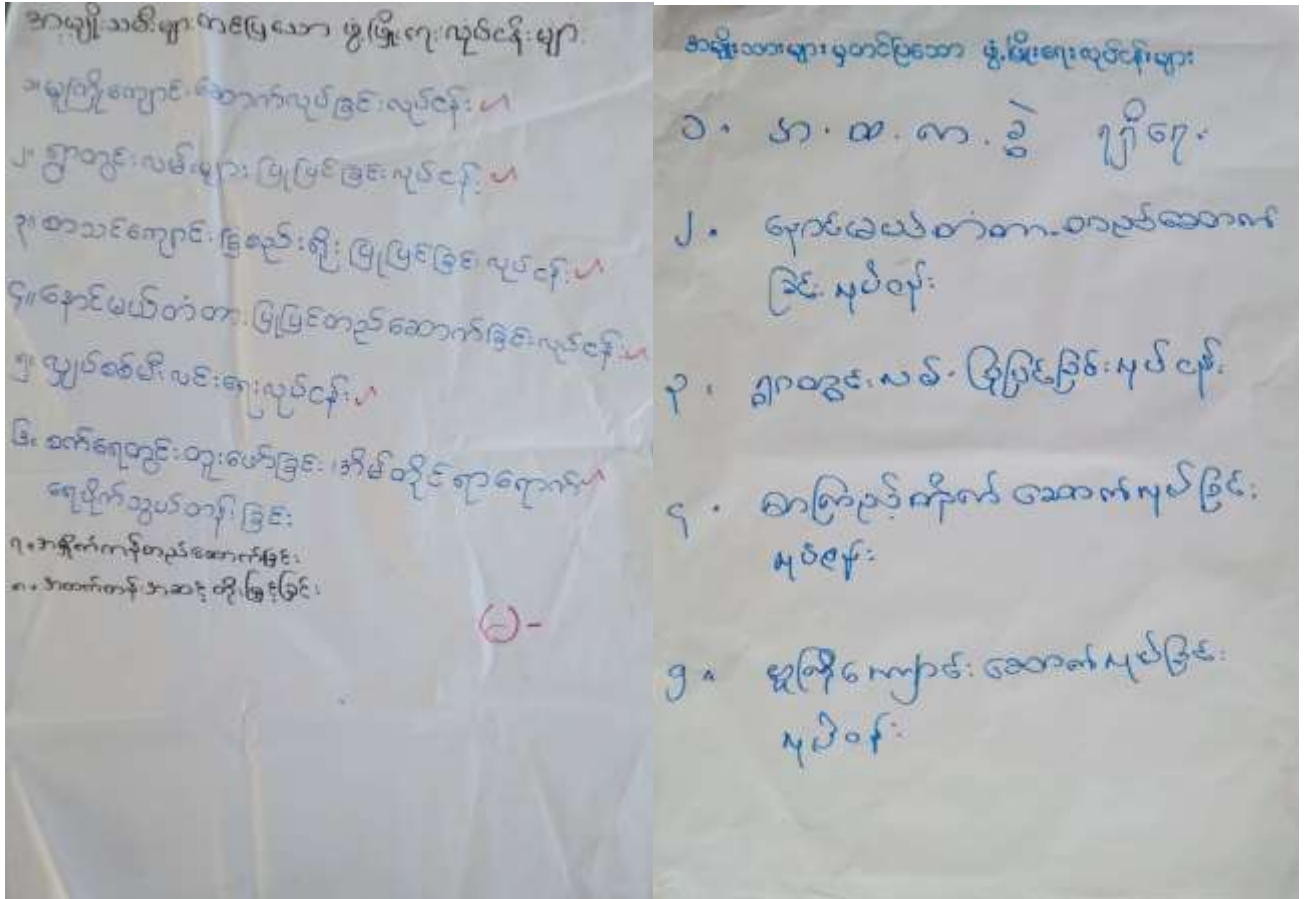 အမျိုးသမီးများတင်ပြသော ဖွံ့ဖြိုးရေးလုပ်ငန်းများ
၁။ မူကြိုကျောင်းဆောက်လုပ်ခြင်းလုပ်ငန်း
၂။ ရွာတွင်းလမ်းများပြုပြင်ခြင်းလုပ်ငန်း
၃။ စာသင်ကျောင်းခြံစည်းရိုးပြုပြင်ခြင်းလုပ်ငန်း
၄။ နောင်မယ်တံတားပြုပြင်တည်ဆောက်ခြင်းလုပ်ငန်း
၅။ လျှပ်စစ်မီးလင်းရေးလုပ်ငန်း
၆။ စက်ရေတွင်းတူးဖော်ခြင်း၊ အိမ်တိုင်ရာရောက်
ရေပိုက်သွယ်တန်းခြင်း
၇။ အမှိုက်ကန်တည်ဆောက်ခြင်း
၈။ အထက်တန်းအဆင့်တိုးမြှင့်ခြင်း
အမျိုးသားများမှတင်ပြသော ဖွံ့ဖြိုးရေးလုပ်ငန်းများ
၁။ အ.ထ.က.ခွဲ ရရှိရေး
၂။ နောင်မယ်တံတားတည်ဆောက်
ခြင်းလုပ်ငန်း
၃။ ရွာတွင်းလမ်းပြုပြင်ခြင်းလုပ်ငန်း
၄။ စာကြည့်တိုက်ဆောက်လုပ်ခြင်း
လုပ်ငန်း
၅။ မူကြိုကျောင်းဆောက်လုပ်ခြင်း
လုပ်ငန်း